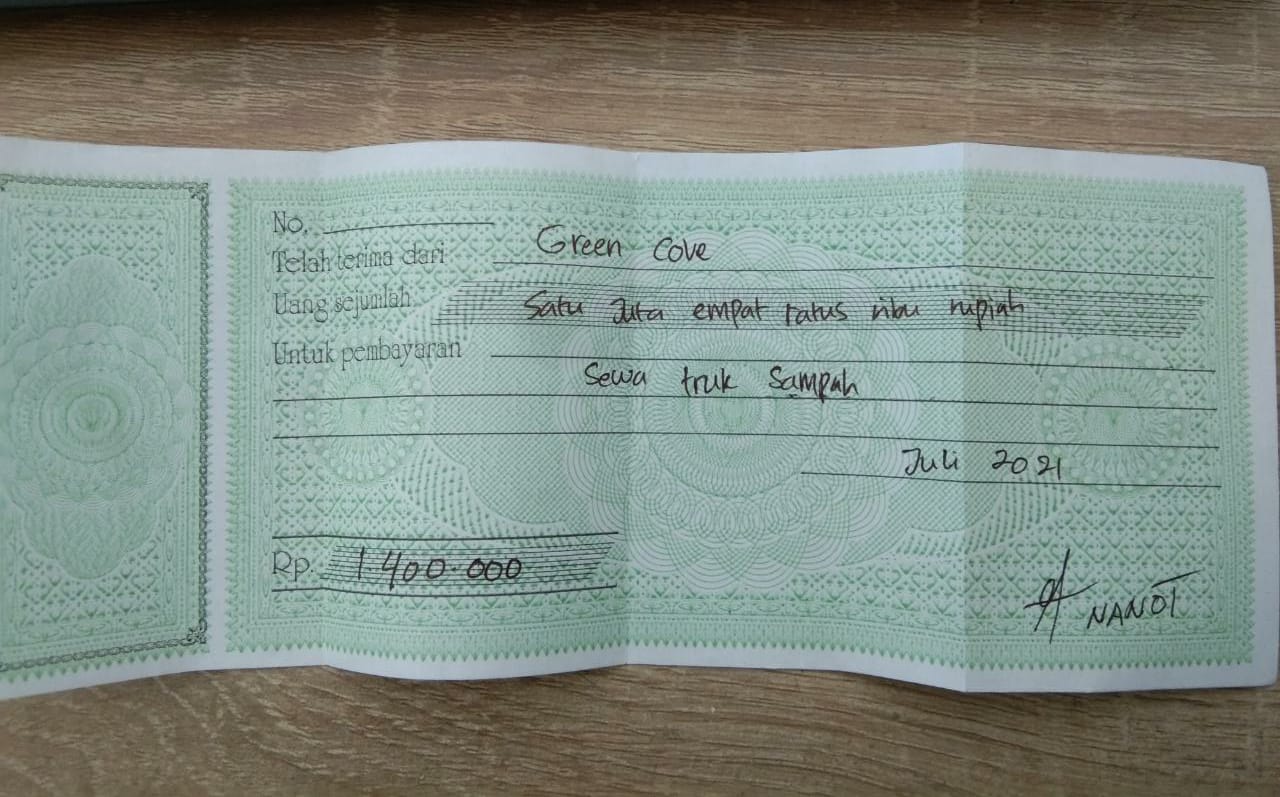 No.
Telah terima dari Green Cove
Uang sejumlah Satu Juta empat ratus ribu rupiah
Untuk pembayaran
Sewa truk Sampah
Juli 2021
Rp. 1400.000
NANOT